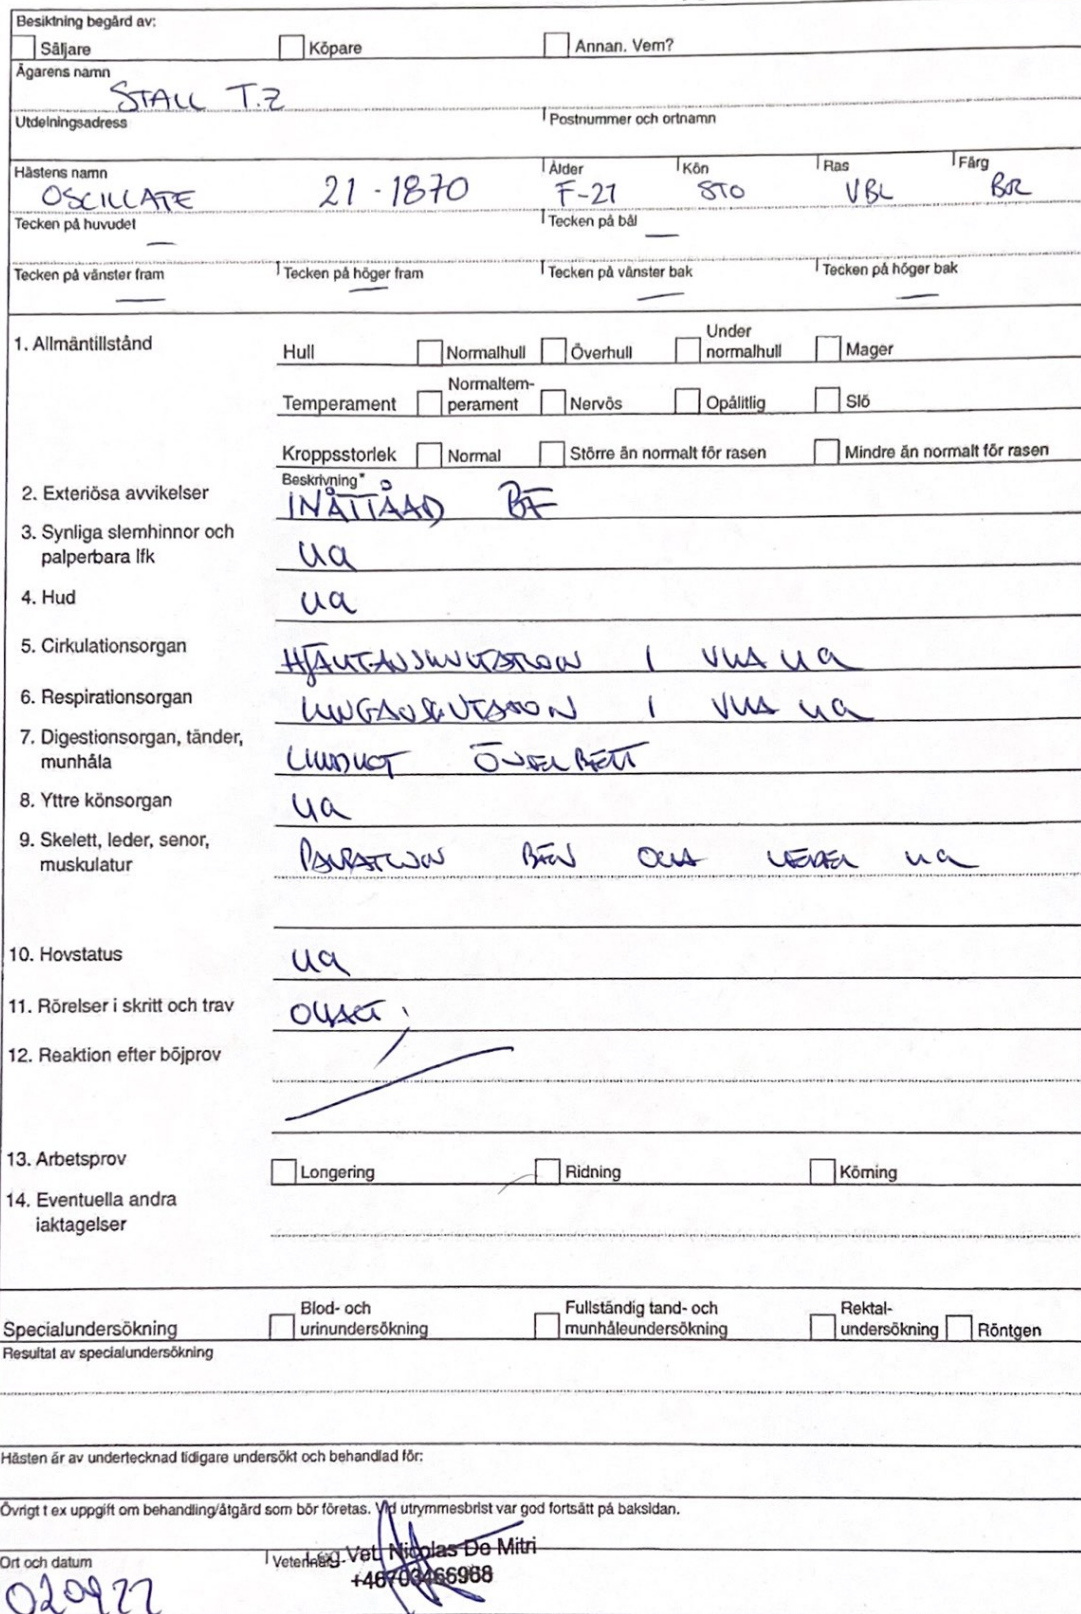 Besiktning begärd av:
Säljare Köpare Annan. Vem?
Ägarens namn
STALL T.Z
Utdelningsadress Postnummer och ortnamn
Hästens namn Ålder Kön Ras Färg
OSCILLATE 21-1870 F-21 STO VBL BR
Tecken på huvudet Tecken på bål
— —
Tecken på vänster fram Tecken på höger fram Tecken på vänster bak Tecken på höger bak
— — — —
1. Allmäntillstånd Hull Normalhull Överhull Under normalhull Mager
Temperament Normaltem-perament Nervös Opålitlig Slö
Kroppsstorlek Normal Större än normalt för rasen Mindre än normalt för rasen
Beskrivning*
2. Exteriösa avvikelser INÅTTÅAD BF
3. Synliga slemhinnor och
palperbara lfk ua
4. Hud ua
5. Cirkulationsorgan HJÄRTAUSKULTATION I VILA ua
6. Respirationsorgan LUNGAUSKULTATION I VILA ua
7. Digestionsorgan, tänder,
munhåla LINDRIGT ÖVERBETT
8. Yttre könsorgan ua
9. Skelett, leder, senor,
muskulatur PALPATION BEN OCH LEDER ua
10. Hovstatus ua
11. Rörelser i skritt och trav
12. Reaktion efter böjprov
13. Arbetsprov Longering Ridning Körning
14. Eventuella andra
iaktagelser
Specialundersökning Blod- och urinundersökning Fullständig tand- och munhåleundersökning Rektal-undersökning Röntgen
Resultat av specialundersökning
Hästen är av undertecknad tidigare undersökt och behandlad för:
Övrigt t ex uppgift om behandling/åtgärd som bör företas. Vid utrymmesbrist var god fortsätt på baksidan.
Ort och datum Leg. Vet. Nicolas De Mitri
020922 +46703466968